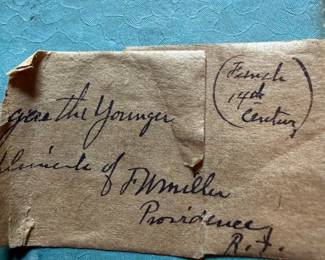 the Younger
of F W Miller
Providence
R. I.
French
14th
Century